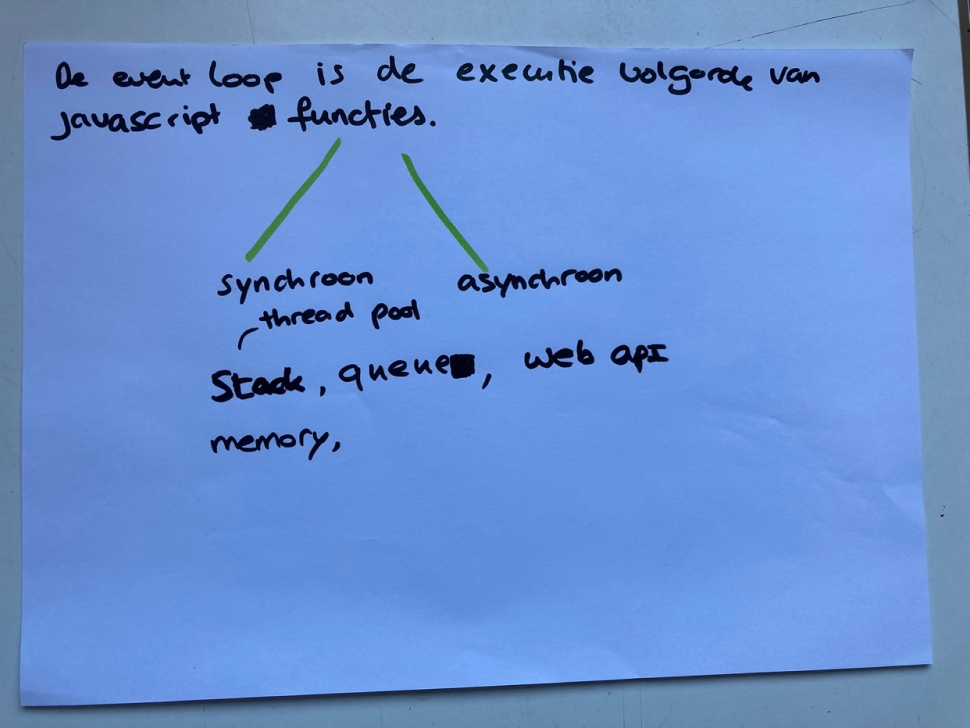 De event loop is de executie volgorde van
javascript functies.
synchroon asynchroon
thread pool
Stack, queue, web api
memory,